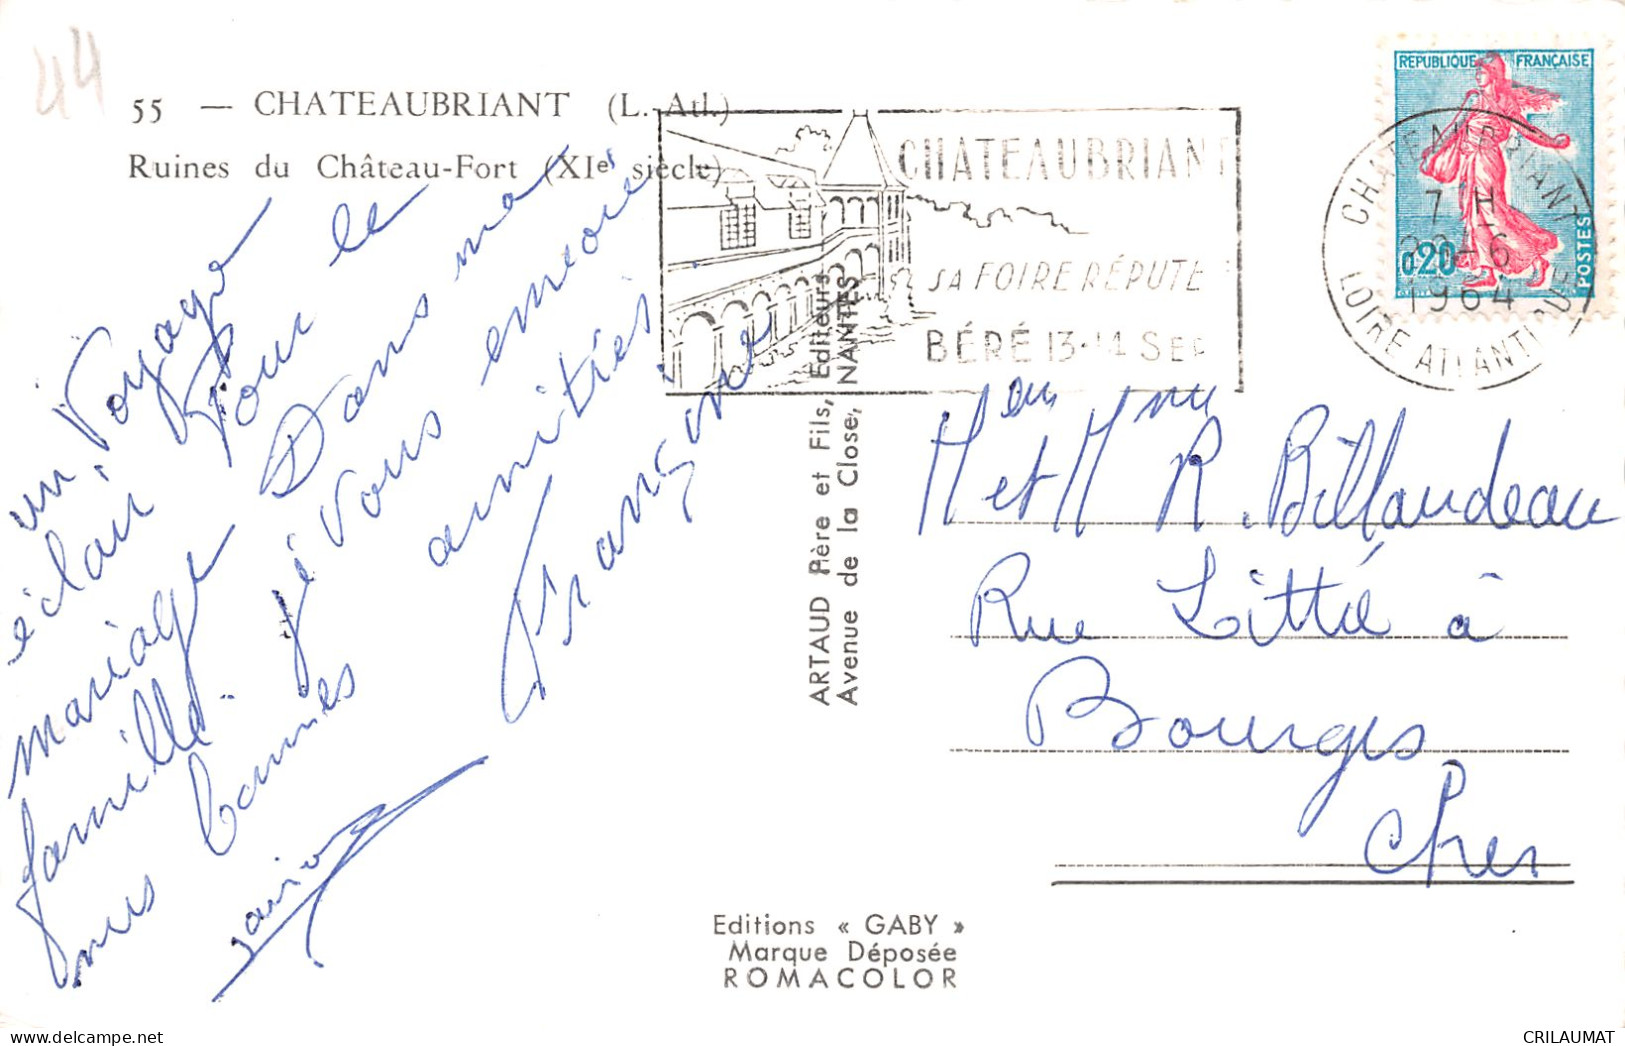 44
55 — CHATEAUBRIANT (L.-Atl.)
Ruines du Château-Fort (XIe siècle)
un voyage
éclair pour le
mariage Dans ma
famille je vous envoie
mes bonnes amitiés.
Françoise
CHATEAUBRIANT
SA FOIRE RÉPUTÉE
BÉRÉ 13-14 SEP
REPUBLIQUE FRANÇAISE
0,20
POSTES
CHATEAUBRIANT
7 H
-6
1964
LOIRE ATLANTIQUE
ARTAUD Père et Fils, Editeurs
Avenue de la Close, NANTES
M et Mme R. Billaudeau
Rue Littré à
Bourges
Cher
Editions « GABY »
Marque Déposée
ROMACOLOR
CRILAUMAT